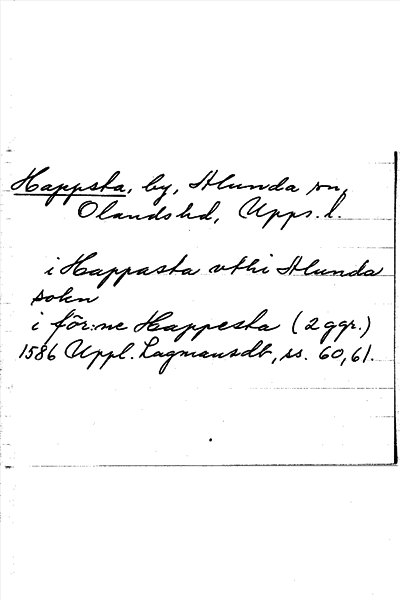 Happsta, by, Alunda sn,
Olands hd, Upps. l.
i Happasta vthi Alunda
sokn
i för:ne Happesta (2 ggr.)
1586 Uppl. Lagmansdb, ss. 60, 61.